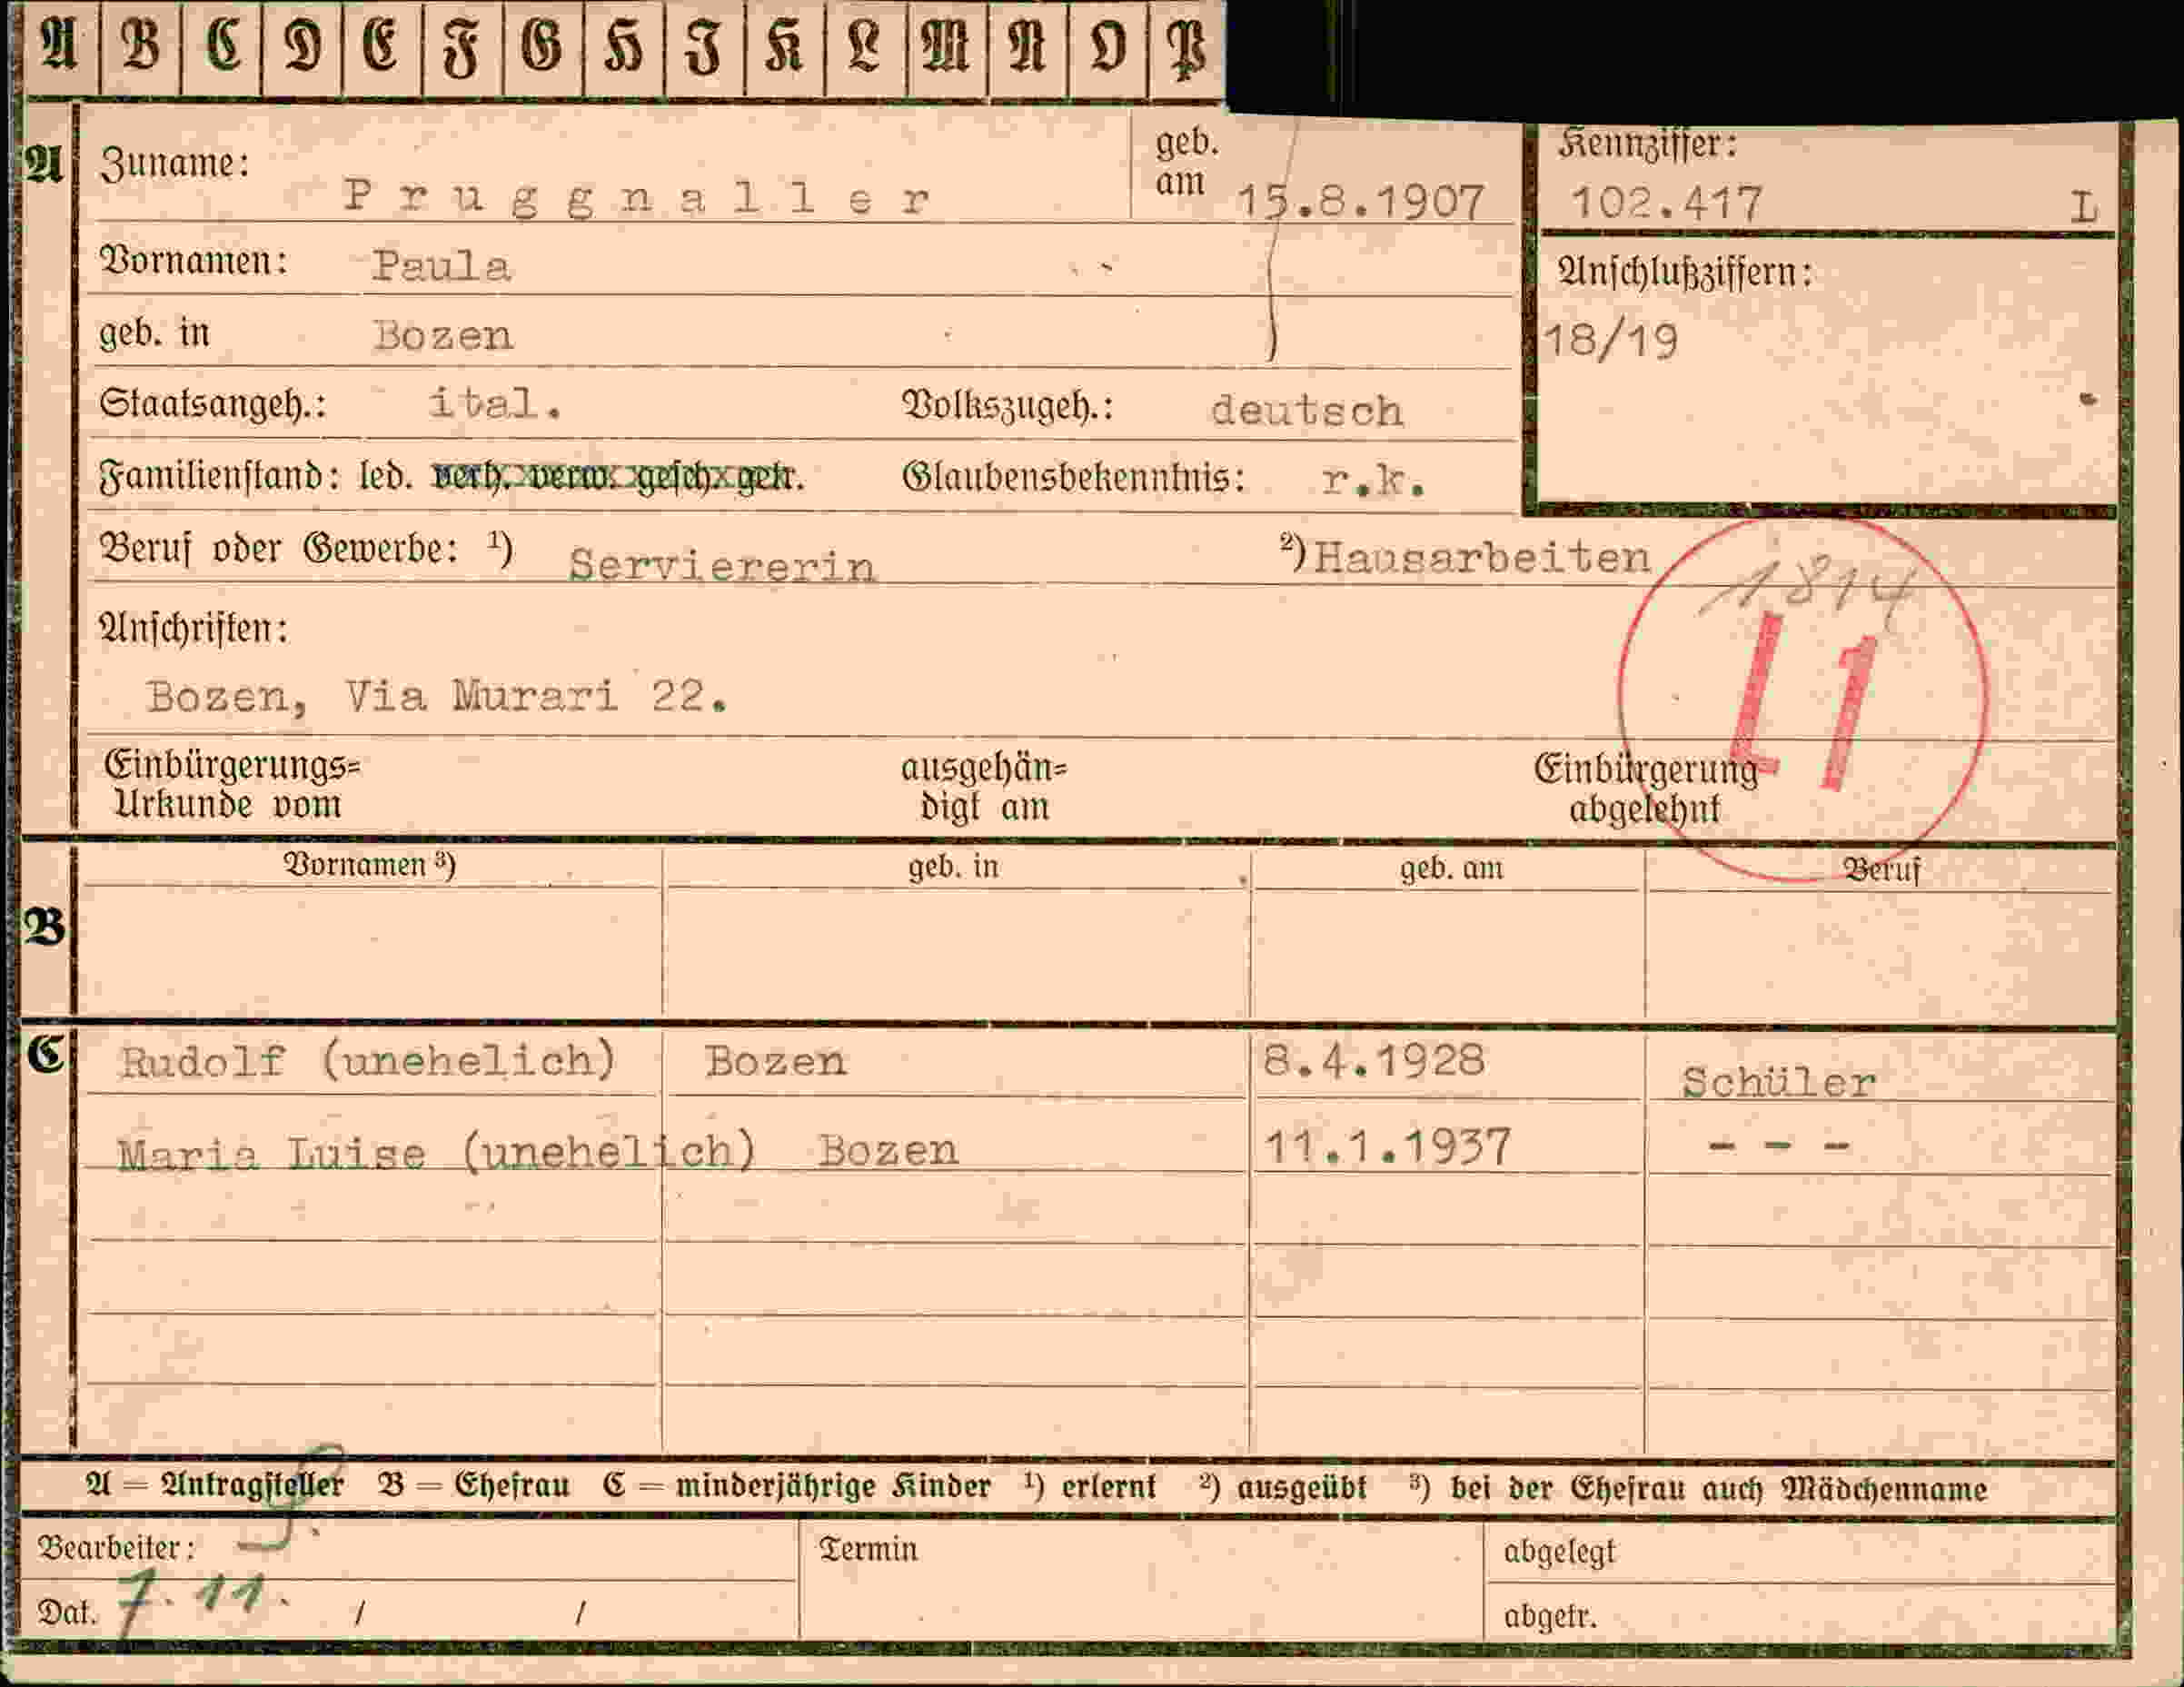 A B C D E F G H J K L M N O P
A Zuname: Pruggnaller geb. am 15.8.1907 Kennziffer: 102.417 L
Vornamen: Paula Anschlußziffern:
geb. in Bozen 18/19
Staatsangeh.: ital. Volkszugeh.: deutsch
Familienstand: led. verh. verw. gesch. getr. Glaubensbekenntnis: r.k.
Beruf oder Gewerbe: ¹) Serviererin ²) Hausarbeiten
1814
Anschriften:
L1
Bozen, Via Murari 22.
Einbürgerungs= ausgehän= Einbürgerung
Urkunde vom digt am abgelehnt
Vornamen ³) geb. in geb. am Beruf
B
C Rudolf (unehelich) Bozen 8.4.1928 Schüler
Maria Luise (unehelich) Bozen 11.1.1937 - - -
A = Antragsteller B = Ehefrau C = minderjährige Kinder ¹) erlernt ²) ausgeübt ³) bei der Ehefrau auch Mädchenname
Bearbeiter: Termin abgelegt
Dat. 7.11. / / abgetr.